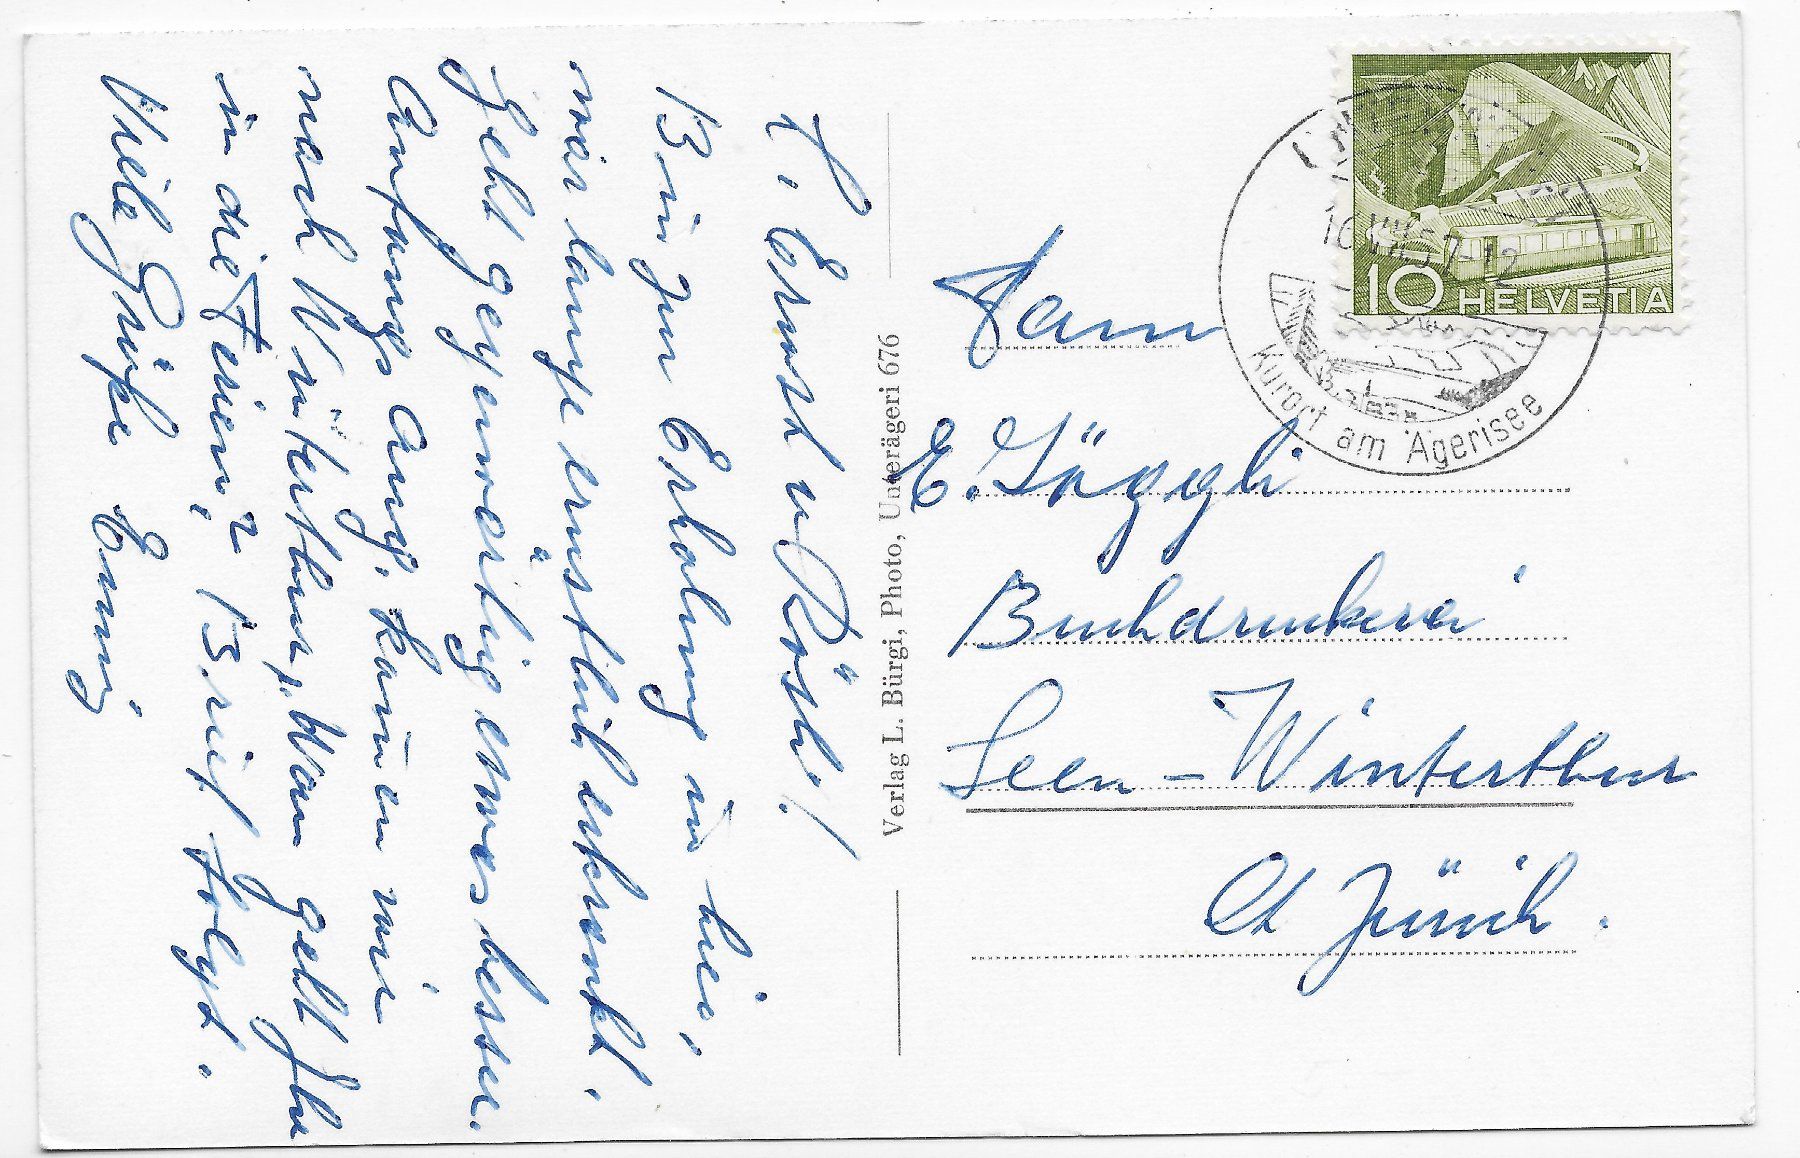 L. Ernst u. Rösli!
Bin zur Erholung in hier,
war lange ernstlich erkrankt.
Geht gegenwärtig etwas besser.
Anfangs Aug. kam̄en wir
nach Winterthur. Wan geht Ihr
in die Ferien? Brief folgt.
Viele Grüße Emmi
Verlag L. Bürgi, Photo, Unterägeri 676
HELVETIA
10
57-12
Kurort am Ägerisee
Fam
E. Göggli
Buchdruckerei
Seen - Winterthur
Ct Zürich.